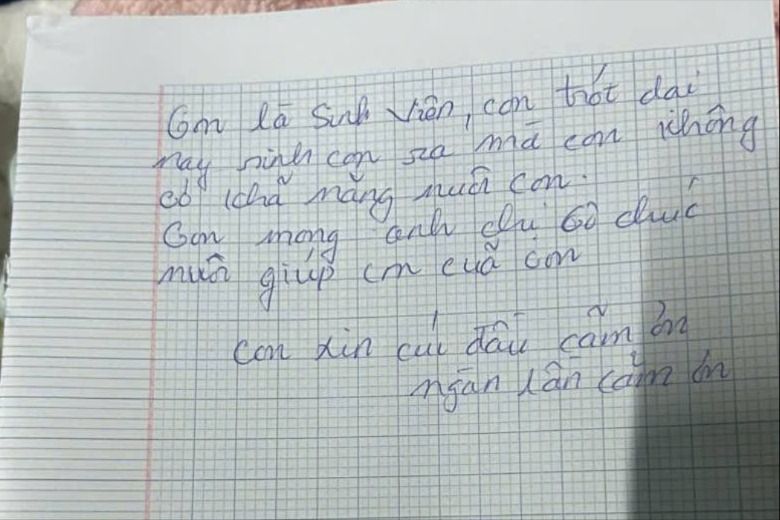 Con là sinh viên, con trót dại
nay sinh con ra mà con không
có khả năng nuôi con.
Con mong anh chị cô chức
nuôi giúp cm cuả con
con xin cúi đầu cãm ơn
ngàn lần cảm ơn